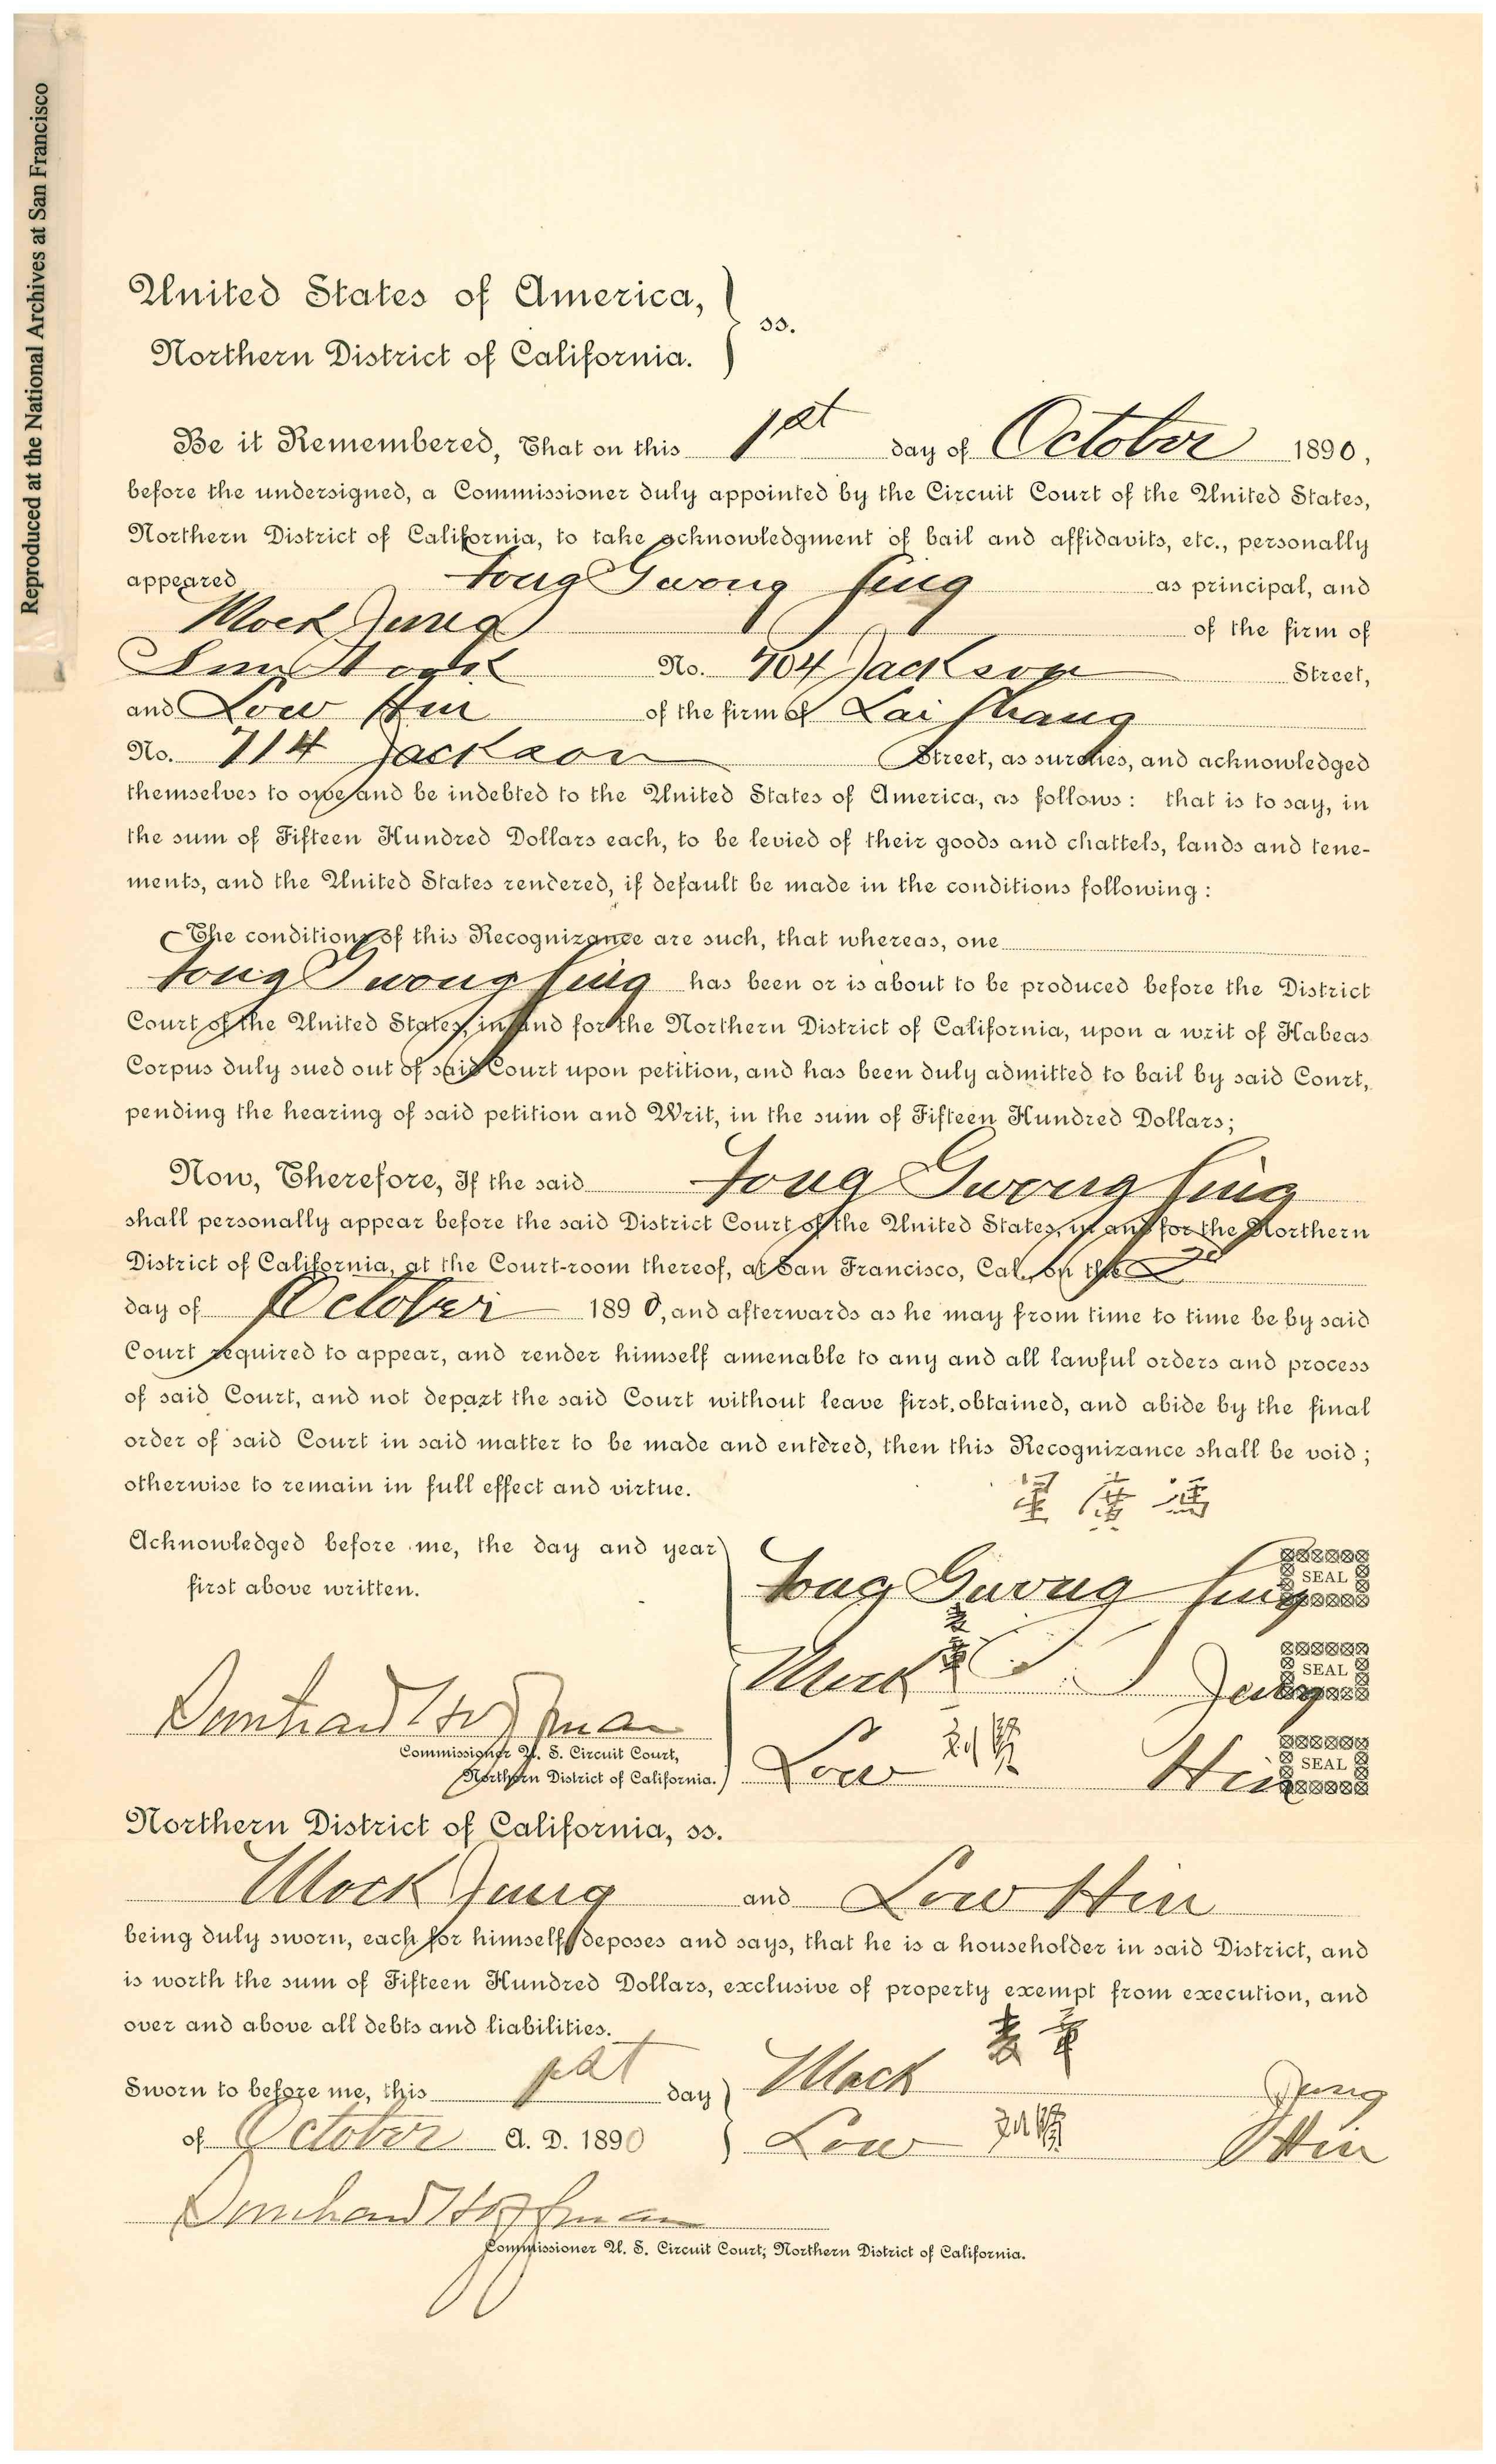 Reproduced at the National Archives at San Francisco
United States of America,
Northern District of California. } ss.
Be it Remembered, That on this 1st day of October 1890,
before the undersigned, a Commissioner duly appointed by the Circuit Court of the United States,
Northern District of California, to take acknowledgment of bail and affidavits, etc., personally
appeared Fong Gwong Sing as principal, and
Mock Jung of the firm of
No. 704 Jackson Street,
and Low Hin of the firm of Lai Shang
No. 714 Jackson Street, as sureties, and acknowledged
themselves to owe and be indebted to the United States of America, as follows: that is to say, in
the sum of Fifteen Hundred Dollars each, to be levied of their goods and chattels, lands and tene-
ments, and the United States rendered, if default be made in the conditions following:
The conditions of this Recognizance are such, that whereas, one
Fong Gwong Sing has been or is about to be produced before the District
Court of the United States, in and for the Northern District of California, upon a writ of Habeas
Corpus duly sued out of said Court upon petition, and has been duly admitted to bail by said Court,
pending the hearing of said petition and Writ, in the sum of Fifteen Hundred Dollars;
Now, Therefore, If the said Fong Gwong Sing
shall personally appear before the said District Court of the United States, in and for the Northern
District of California, at the Court-room thereof, at San Francisco, Cal., on the 2d
day of October 1890, and afterwards as he may from time to time be by said
Court required to appear, and render himself amenable to any and all lawful orders and process
of said Court, and not depart the said Court without leave first obtained, and abide by the final
order of said Court in said matter to be made and entered, then this Recognizance shall be void;
otherwise to remain in full effect and virtue.
星廣馮
Acknowledged before me, the day and year
first above written.
Fong Gwong Sing SEAL
Mock Jung SEAL
Hoffman
Commissioner U. S. Circuit Court,
Northern District of California.
Low 刘贤 Hin SEAL
Northern District of California, ss.
Mock Jung and Low Hin
being duly sworn, each for himself deposes and says, that he is a householder in said District, and
is worth the sum of Fifteen Hundred Dollars, exclusive of property exempt from execution, and
over and above all debts and liabilities.
Sworn to before me, this 1st day
of October A. D. 1890
Mock Jung
Low 刘贤 Hin
Hoffman
Commissioner U. S. Circuit Court, Northern District of California.